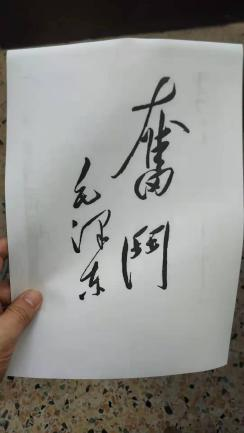 奮鬥
毛澤东